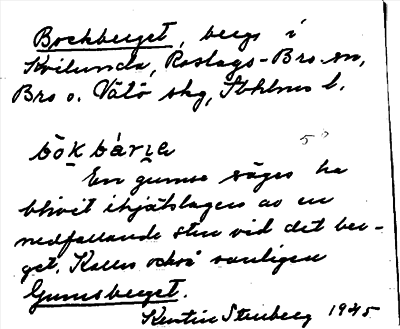 Bockberget, berg i
Kvilunda, Roslags-Bro sn,
Bro o. Vätö skg, Sthlms l.
bòkbár̯ɪe
En gumse säges ha
blivit ihjälslagen av en
nedfallande sten vid det ber-
get. Kallas också vanligen
Gumsberget.
Kerstin Stenberg 1945